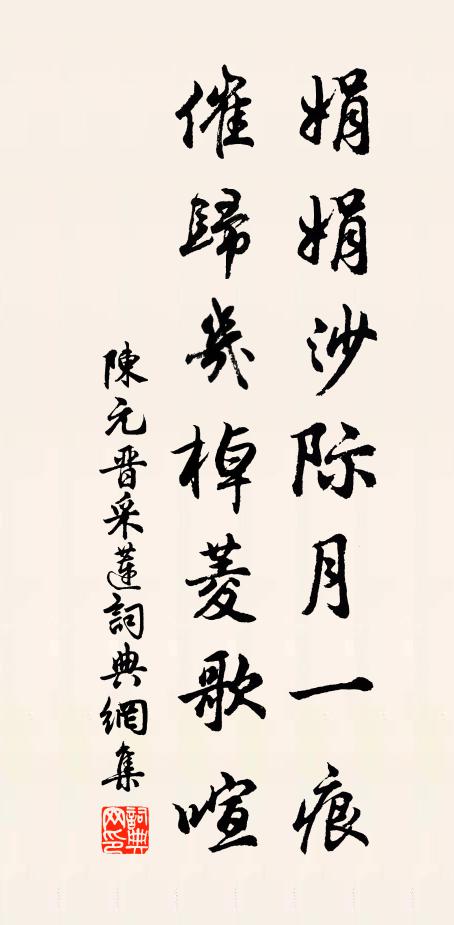 娟娟沙际月一痕
催歸幾棹菱歌喧
陳元晋采蓮詞典網集
詞典網印